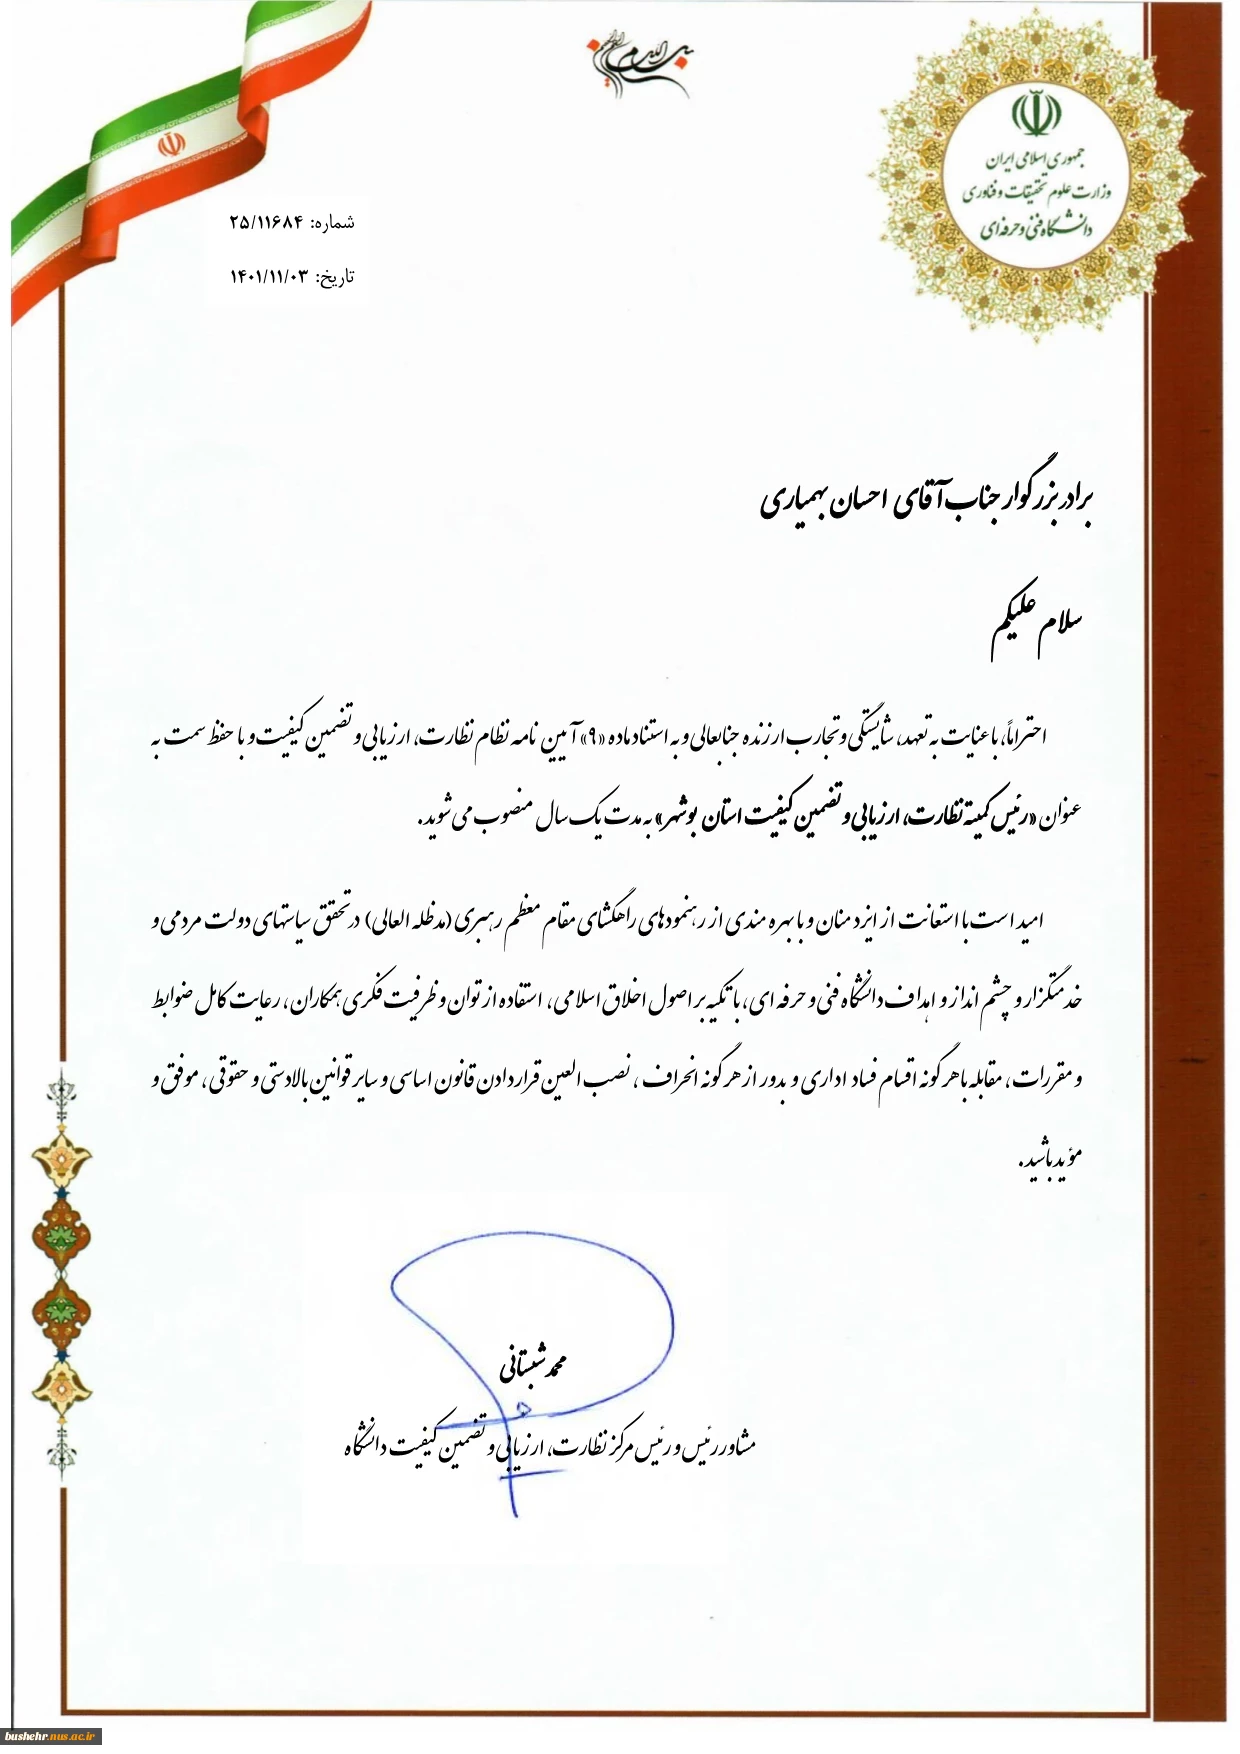 بسم الله الرحمن الرحیم
جمهوری اسلامی ایران
وزارت علوم تحقیقات و فناوری
دانشگاه فنی و حرفه‌ای
شماره: ۲۵/۱۱۶۸۴
تاریخ: ۱۴۰۱/۱۱/۰۳
برادر بزرگوار جناب آقای احسان بهمیاری
سلام علیکم
احتراماً، با عنایت به تعهد، شایستگی و تجارب ارزنده جنابعالی و به استناد ماده «۹» آیین نامه نظام نظارت، ارزیابی و تضمین کیفیت و با حفظ سمت به
عنوان «رئیس کمیته نظارت، ارزیابی و تضمین کیفیت استان بوشهر» به مدت یک سال منصوب می شوید.
امید است با استعانت از ایزد منان و با بهره مندی از رهنمودهای راهگشای مقام معظم رهبری (مدظله العالی) در تحقق سیاستهای دولت مردمی و
خدمتگزار و چشم انداز و اهداف دانشگاه فنی و حرفه ای، با تکیه بر اصول اخلاق اسلامی، استفاده از توان و ظرفیت فکری همکاران، رعایت کامل ضوابط
و مقررات، مقابله با هر گونه اقسام فساد اداری و بدور از هر گونه انحراف، نصب العین قرار دادن قانون اساسی و سایر قوانین بالادستی و حقوقی، موفق و
مؤید باشید.
محمد شبستانی
مشاور رئیس و رئیس مرکز نظارت، ارزیابی و تضمین کیفیت دانشگاه
bushehr.nus.ac.ir